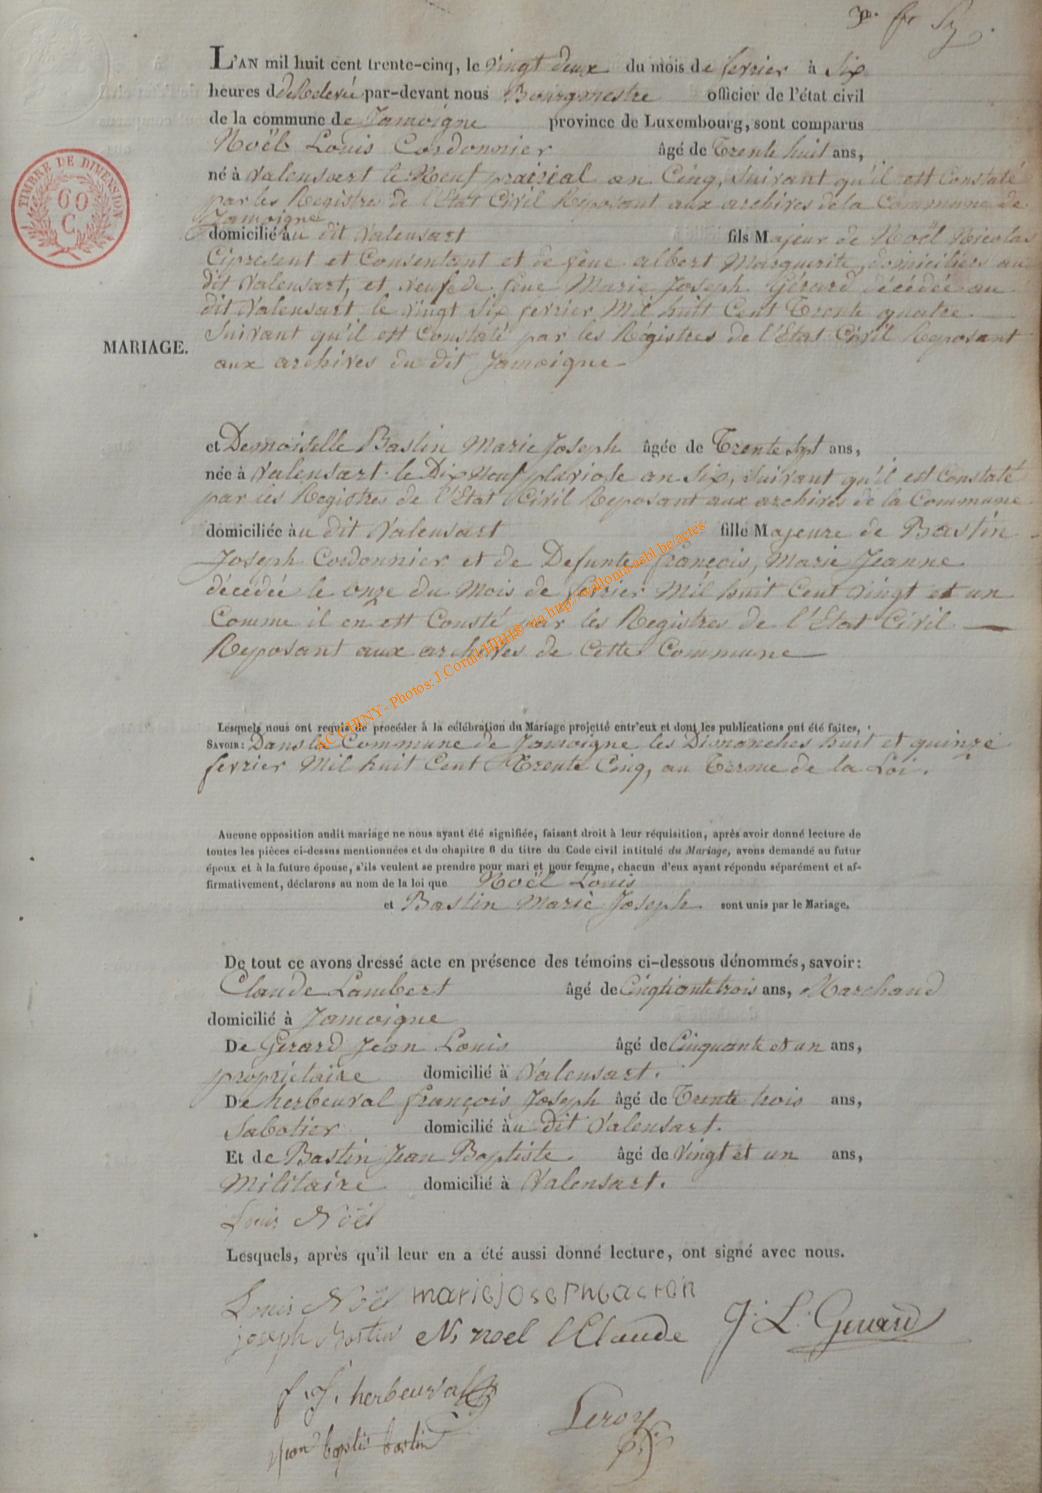 TIMBRE DE DIMENSION
60
C.
L'AN mil huit cent trente-cinq, le vingt deux du mois de fevrier à Six
heures de Relevée par-devant nous Bourgmestre officier de l'état civil
de la commune de Jamoigne province de Luxembourg, sont comparus
Noël Louis Cordonnier âgé de Trente huit ans,
né à Valensart le Neuf prairial an Cinq, Suivant qu'il est Constaté
par les Registres de l'Etat Civil Reposant aux archives de la Commune de
Jamoigne
domicilié au dit Valensart fils Majeur de Noël Nicolas
Cipresent et Consentant et de feue albert Marguerite, domiciliés au
dit Valensart, et veuf de feue Marie Joseph Gérard décédée au
dit Valensart le vingt Six fevrier Mil huit Cent Trente quatre
Suivant qu'il est Constaté par les Régistres de l'Etat Civil Reposant
MARIAGE.
aux archives du dit Jamoigne
et Demoiselle Bastin Marie Joseph âgée de Trente Sept ans,
née à Valensart le Dix Neuf pluviose an Six, Suivant qu'il est Constaté
par les Registres de l'Etat Civil Reposant aux archives de la Commune
domiciliée au dit Valensart fille Majeure de Bastin
Joseph Cordonnier et de Defunte françois, Marie Jeanne
décédée le onze du Mois de fevrier Mil huit Cent vingt et un
Comme il en est Consté par les Registres de l'Etat Civil
Reposant aux archives de Cette Commune
ACCHINY - Photos: J.Cornet
Lesquels nous ont requis de procéder à la célébration du Mariage projetté entr'eux et dont les publications ont été faites,
SAVOIR: Dans la Commune de Jamoigne les Dimanches huit et quinze
fevrier Mil huit Cent Trente Cinq, au Terme de la Loi.
Aucune opposition audit mariage ne nous ayant été signifiée, faisant droit à leur réquisition, après avoir donné lecture de
toutes les pièces ci-dessus mentionnées et du chapitre 6 du titre du Code civil intitulé du Mariage, avons demandé au futur
époux et à la future épouse, s'ils veulent se prendre pour mari et pour femme, chacun d'eux ayant répondu séparément et af-
firmativement, déclarons au nom de la loi que Noël Louis
et Bastin Marie Joseph sont unis par le Mariage.
De tout ce avons dressé acte en présence des témoins ci-dessous dénommés, savoir:
Claude Lambert âgé de Cinquante trois ans, Marchand
domicilié à Jamoigne
De Gerard Jean Louis âgé de Cinquante et un ans,
propriétaire domicilié à Valensart.
De herbeuval françois Joseph âgé de Trente trois ans,
Sabotier domicilié au dit Valensart.
Et de Bastin Jean Baptiste âgé de Vingt et un ans,
Militaire domicilié à Valensart.
Louis Noël
Lesquels, après qu'il leur en a été aussi donné lecture, ont signé avec nous.
Louis Noël mariejosephbastin
joseph Bastin N noel lClaude J. L. Gerard
f. J. herbeuval
jean baptis bastin Leroy